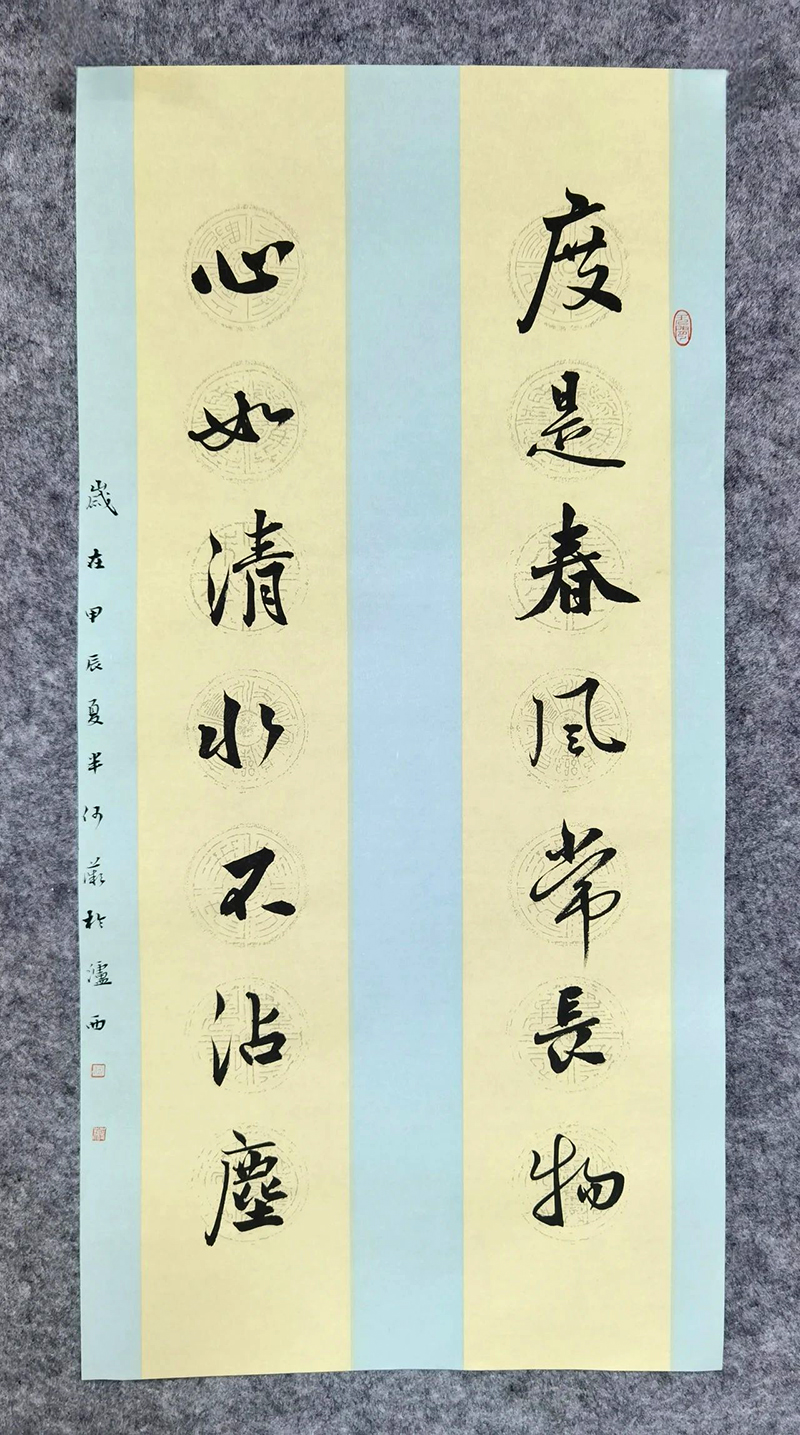 度是春風常長物
心如清水不沾塵
歲在甲辰夏半何薇於瀘西